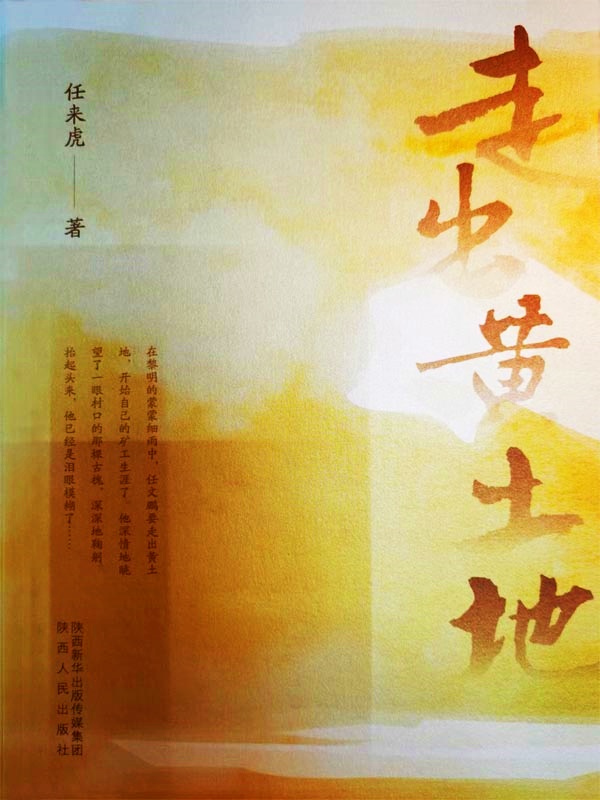 走出黄土地
任来虎——著
在黎明的蒙蒙细雨中，任文鹏要走出黄土
地，开始自己的矿工生涯了。他深情地眺
望了一眼村口的那棵古槐，深深地鞠躬。
抬起头来，他已经是泪眼模糊了……
陕西新华出版传媒集团
陕西人民出版社